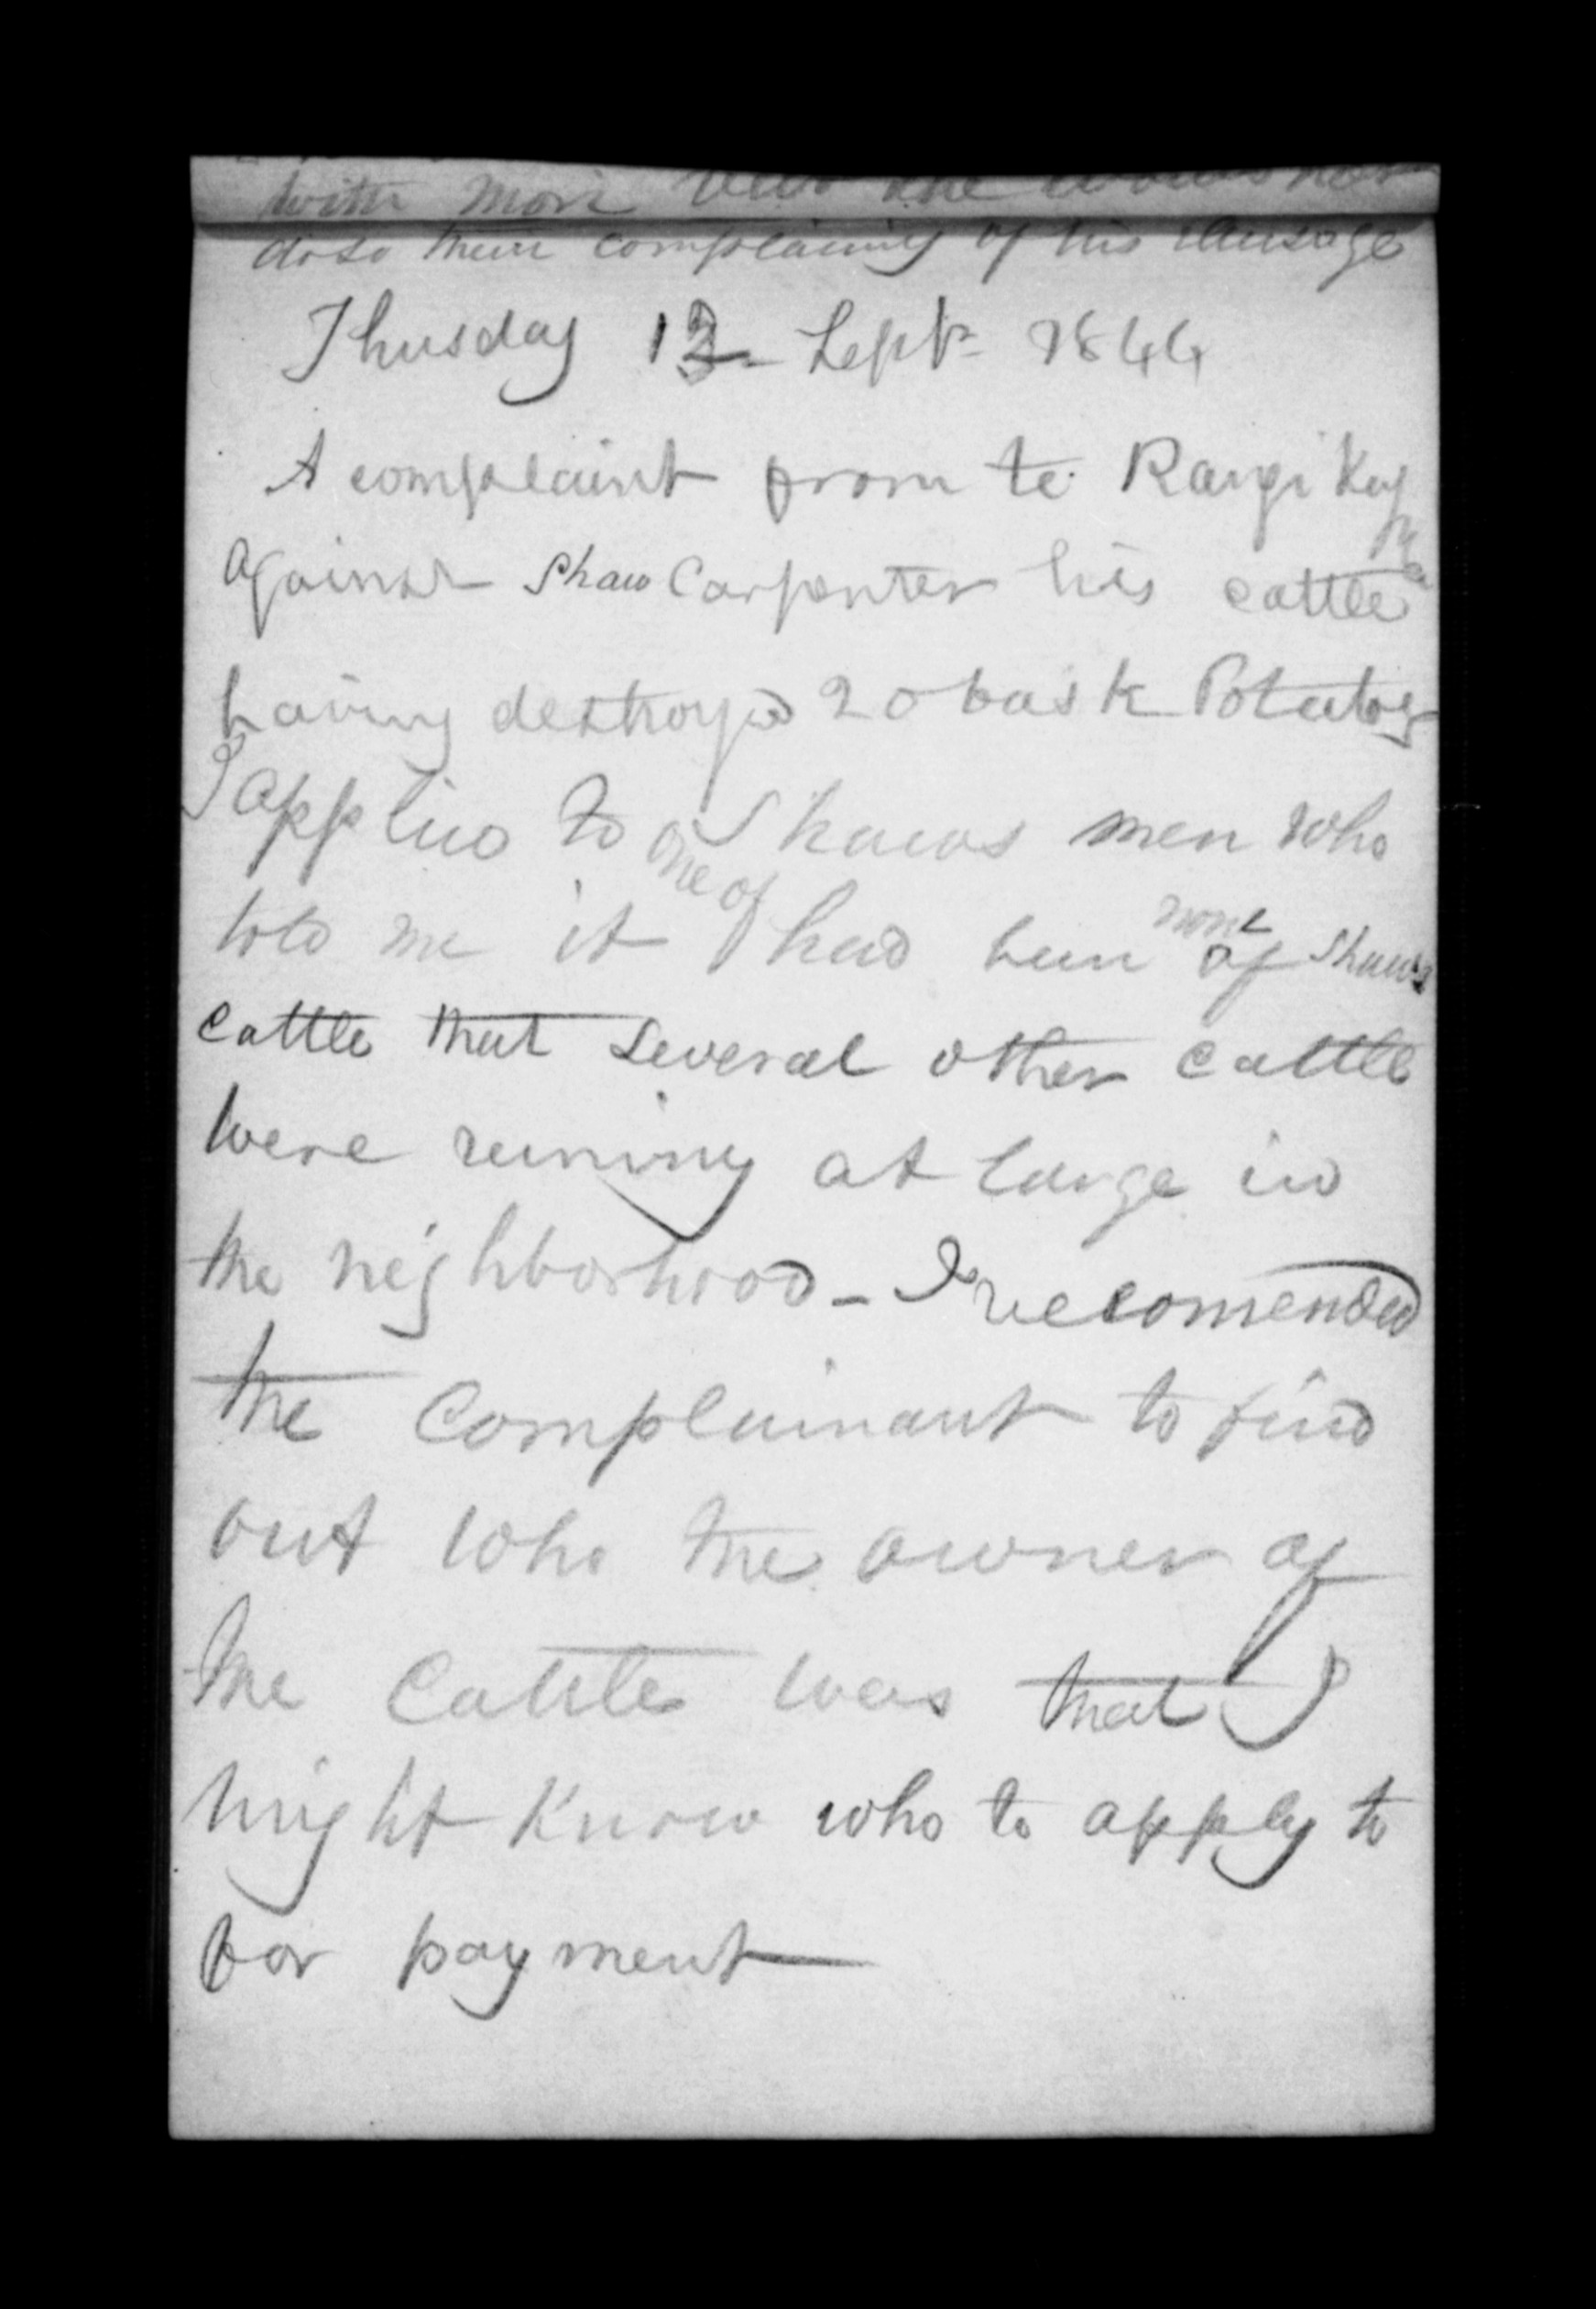 with more
doso their complaining of his
Thusday 12 Sept 1844
A complaint from te Rangi
against Shaw Carpenter his cattle
having destroyd 20 bask Potatoes
I applied to one of Shaws men who
told me it had been none of Shaws
cattle that several other cattle
were runing at large in
the neighborhood - I recomended
the Complainant to find
out who the owner of
the Cattle was that I
might know who to apply to
for payment